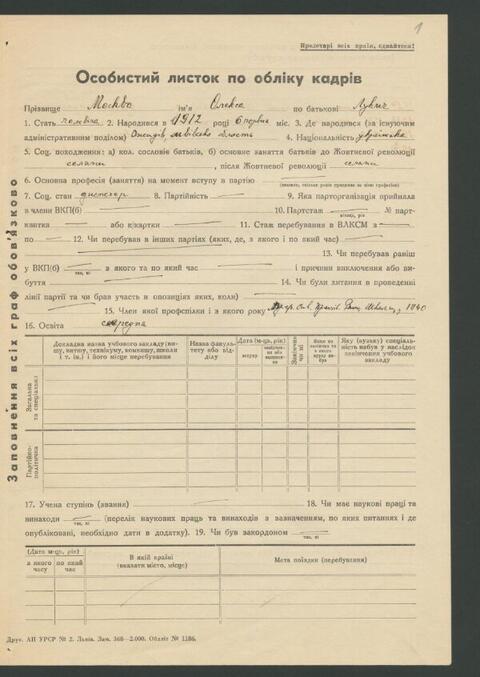 1
Пролетарі всіх країн, єднайтеся!
Особистий листок по обліку кадрів
Прізвище Москво ім'я Олекса по батькові
1. Стать 2. Народився в 1912 році 6 червня міс. 3. Де народився (за існуючим
адміністративним поділом) 4. Національність
5. Соц. походження: а) кол. сословіє батьків, б) основне заняття батьків до Жовтневої революції
селяни, після Жовтневої революції селяни
6. Основна професія (заняття) на момент вступу в партію
(вказати, скільки років працював за цією професією)
7. Соц. стан 8. Партійність — 9. Яка парторганізація прийняла
в члени ВКП(б) — 10. Партстаж — № парт-
місяць, рік
квитка — або к/картки — 11. Стаж перебування в ВЛКСМ з —
по — 12. Чи перебував в інших партіях (яких, де, з якого і по який час) —
13. Чи перебував раніш
у ВКП(б) — з якого та по який час — і причини виключення або ви-
так, ні
буття — 14. Чи були хитання в проведенні
лінії партії та чи брав участь в опозиціях яких, коли) —
15. Член якої профспілки і з якого року 1940
16. Освіта середня
Заповнення всіх граф обов'язково
Докладна назва учбового закладу (ви-
шу, втузу, технікуму, комвишу, школи
і т. ін.) і його місце перебування
Назва факуль-
тету або від-
ділу
Дата (м-ць, рік)
вступу
Закінчив
чи ні
Яку (вузьку) спеціаль-
ність набув у наслідок
закінчення учбового
закладу
Загальна
та спеціальна
Партійно-
політична
17. Учена ступінь (звання) — 18. Чи має наукові праці та
винаходи — (перелік наукових праць та винаходів з зазначенням, по яких питаннях і де
так, ні
опубліковані, необхідно дати в додатку). 19. Чи був закордоном —
так, ні
(Дата м-ць, рік)
з якого
часу
по який
час
В якій країні
(вказати місто, місце)
Мета поїздки (перебування)
Друк. АН УРСР № 2. Львів. Зам. 368—2.000. Обліт № 1186.